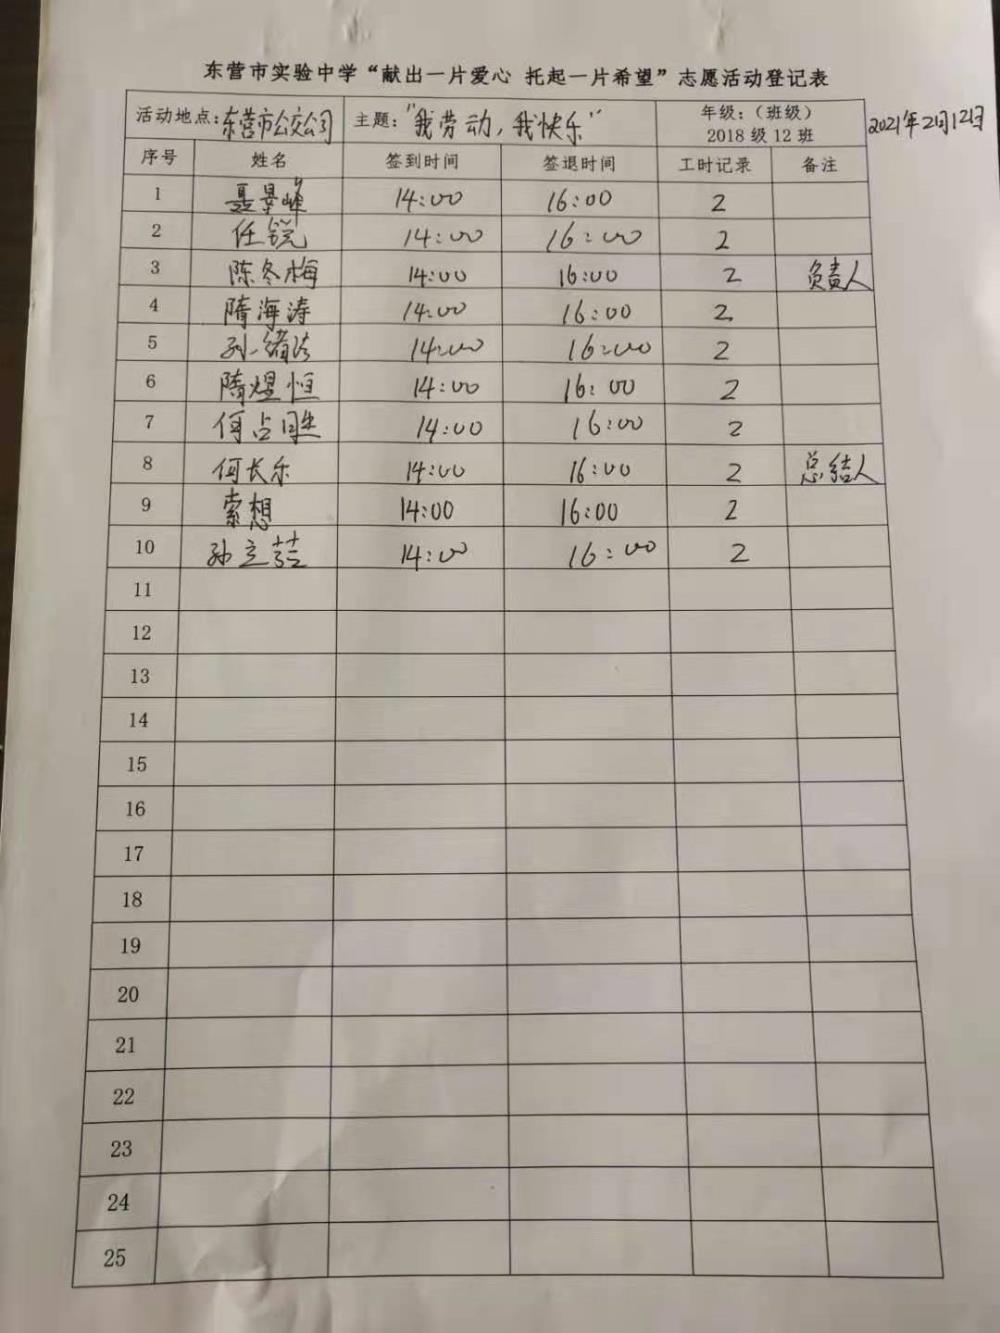 东营市实验中学“献出一片爱心 托起一片希望”志愿活动登记表
活动地点:东营市公交公司 主题:“我劳动,我快乐” 年级:(班级) 2018 级 12 班 2021年2月12日
序号 姓名 签到时间 签退时间 工时记录 备注
1 聂景峰 14:00 16:00 2
2 任锐 14:00 16:00 2
3 陈冬梅 14:00 16:00 2 负责人
4 隋海涛 14:00 16:00 2
5 孙 14:00 16:00 2
6 隋煜恒 14:00 16:00 2
7 何占胜 14:00 16:00 2
8 何长乐 14:00 16:00 2 总结人
9 索想 14:00 16:00 2
10 孙立 14:00 16:00 2
11
12
13
14
15
16
17
18
19
20
21
22
23
24
25